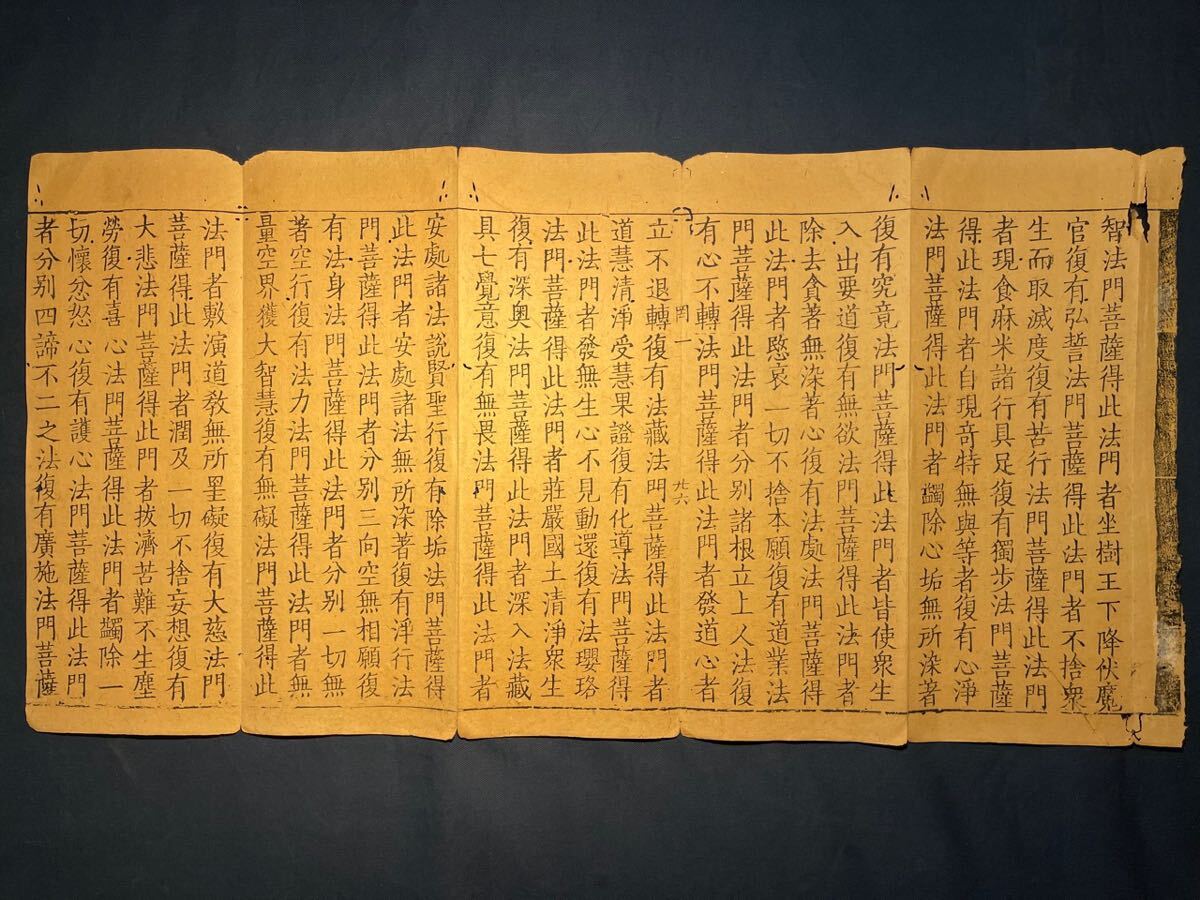 智法門菩薩得此法門者坐樹王下降伏魔
官復有弘誓法門菩薩得此法門者不捨衆
生而取滅度復有苦行法門菩薩得此法門
者現食麻米諸行具足復有獨步法門菩薩
得此法門者自現奇特無與等者復有心淨
法門菩薩得此法門者蠲除心垢無所染著
復有究竟法門菩薩得此法門者皆使衆生
入出要道復有無欲法門菩薩得此法門者
除去貪著無染著心復有法處法門菩薩得
此法門者愍哀一切不捨本願復有道業法
門菩薩得此法門者分別諸根立上人法復
有心不轉法門菩薩得此法門者發道心者
罔一 九六
立不退轉復有法藏法門菩薩得此法門者
道慧清淨受慧果證復有化導法門菩薩得
此法門者發無生心不見動還復有法瓔珞
法門菩薩得此法門者莊嚴國土清淨衆生
復有深奧法門菩薩得此法門者深入法藏
具七覺意復有無畏法門菩薩得此法門者
安處諸法說賢聖行復有除垢法門菩薩得
此法門者安處諸法無所染著復有淨行法
門菩薩得此法門者分別三向空無相願復
有法身法門菩薩得此法門者分別一切無
著空行復有法力法門菩薩得此法門者無
量空界獲大智慧復有無礙法門菩薩得此
法門者敷演道教無所罣礙復有大慈法門
菩薩得此法門者潤及一切不捨妄想復有
大悲法門菩薩得此門者拔濟苦難不生塵
勞復有喜心法門菩薩得此法門者蠲除一
切懷忿怒心復有護心法門菩薩得此法門
者分別四諦不二之法復有廣施法門菩薩